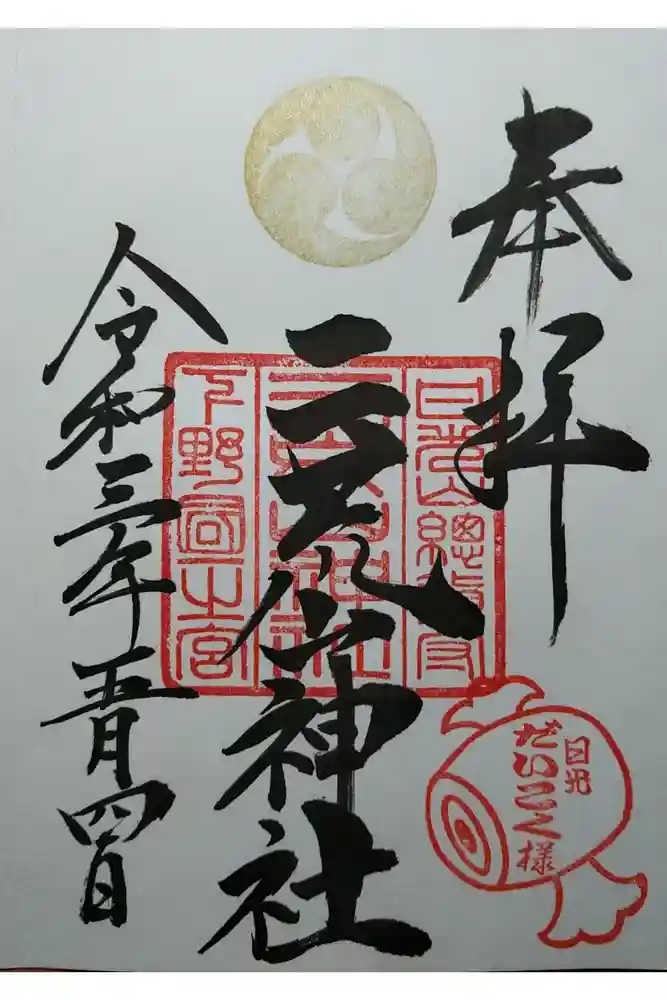 奉拝
二荒山神社
令和三年五月四日
日光山總鎮守
二荒山神社
下野國一之宮
日光
だいこく様